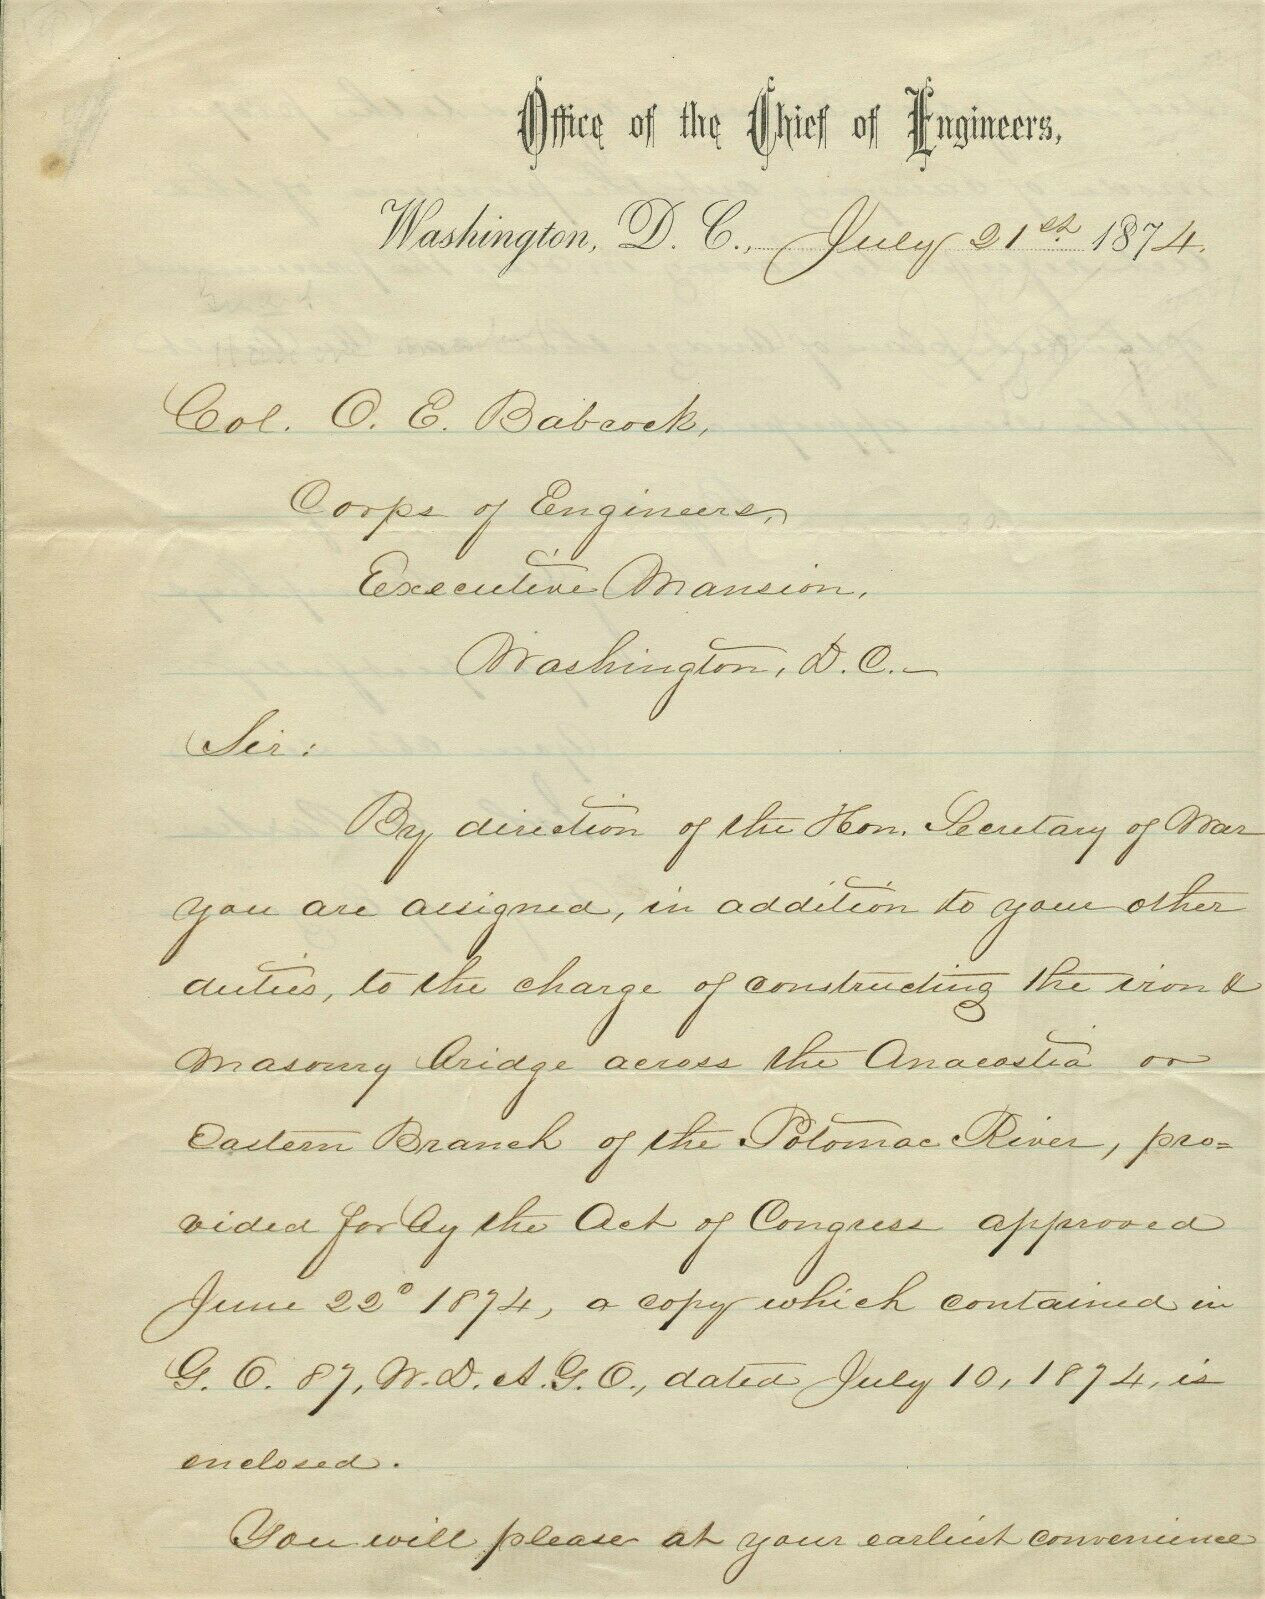 Office of the Chief of Engineers,
Washington, D. C., July 21st. 1874.
Col. O. E. Babcock,
Corps of Engineers,
Executive Mansion,
Washington, D. C.
Sir:
By direction of the Hon. Secretary of War
you are assigned, in addition to your other
duties, to the charge of constructing the iron &
masonry bridge across the Anacostia or
Eastern Branch of the Potomac River, pro=
vided for by the Act of Congress approved
June 22d 1874, a copy which contained in
G. O. 87, W. D. A. G. O., dated July 10, 1874, is
enclosed.
You will please at your earliest convenience